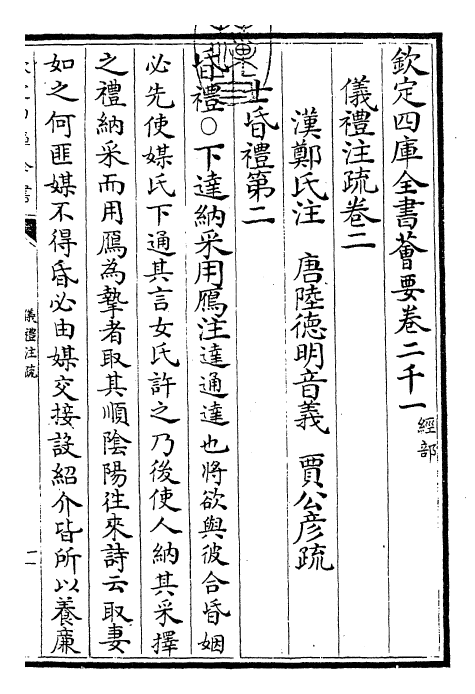 欽定四庫全書薈要卷二千一 經部
儀禮注疏卷二
漢鄭氏注 唐陸德明音義 賈公彦疏
士昏禮第二
昏禮○下達納采用鴈注達通達也將欲與彼合昏姻
必先使媒氏下通其言女氏許之乃後使人納其采擇
之禮納采而用鴈為摯者取其順陰陽往來詩云取妻
如之何匪媒不得昏必由媒交接設紹介皆所以養廉
儀禮注疏